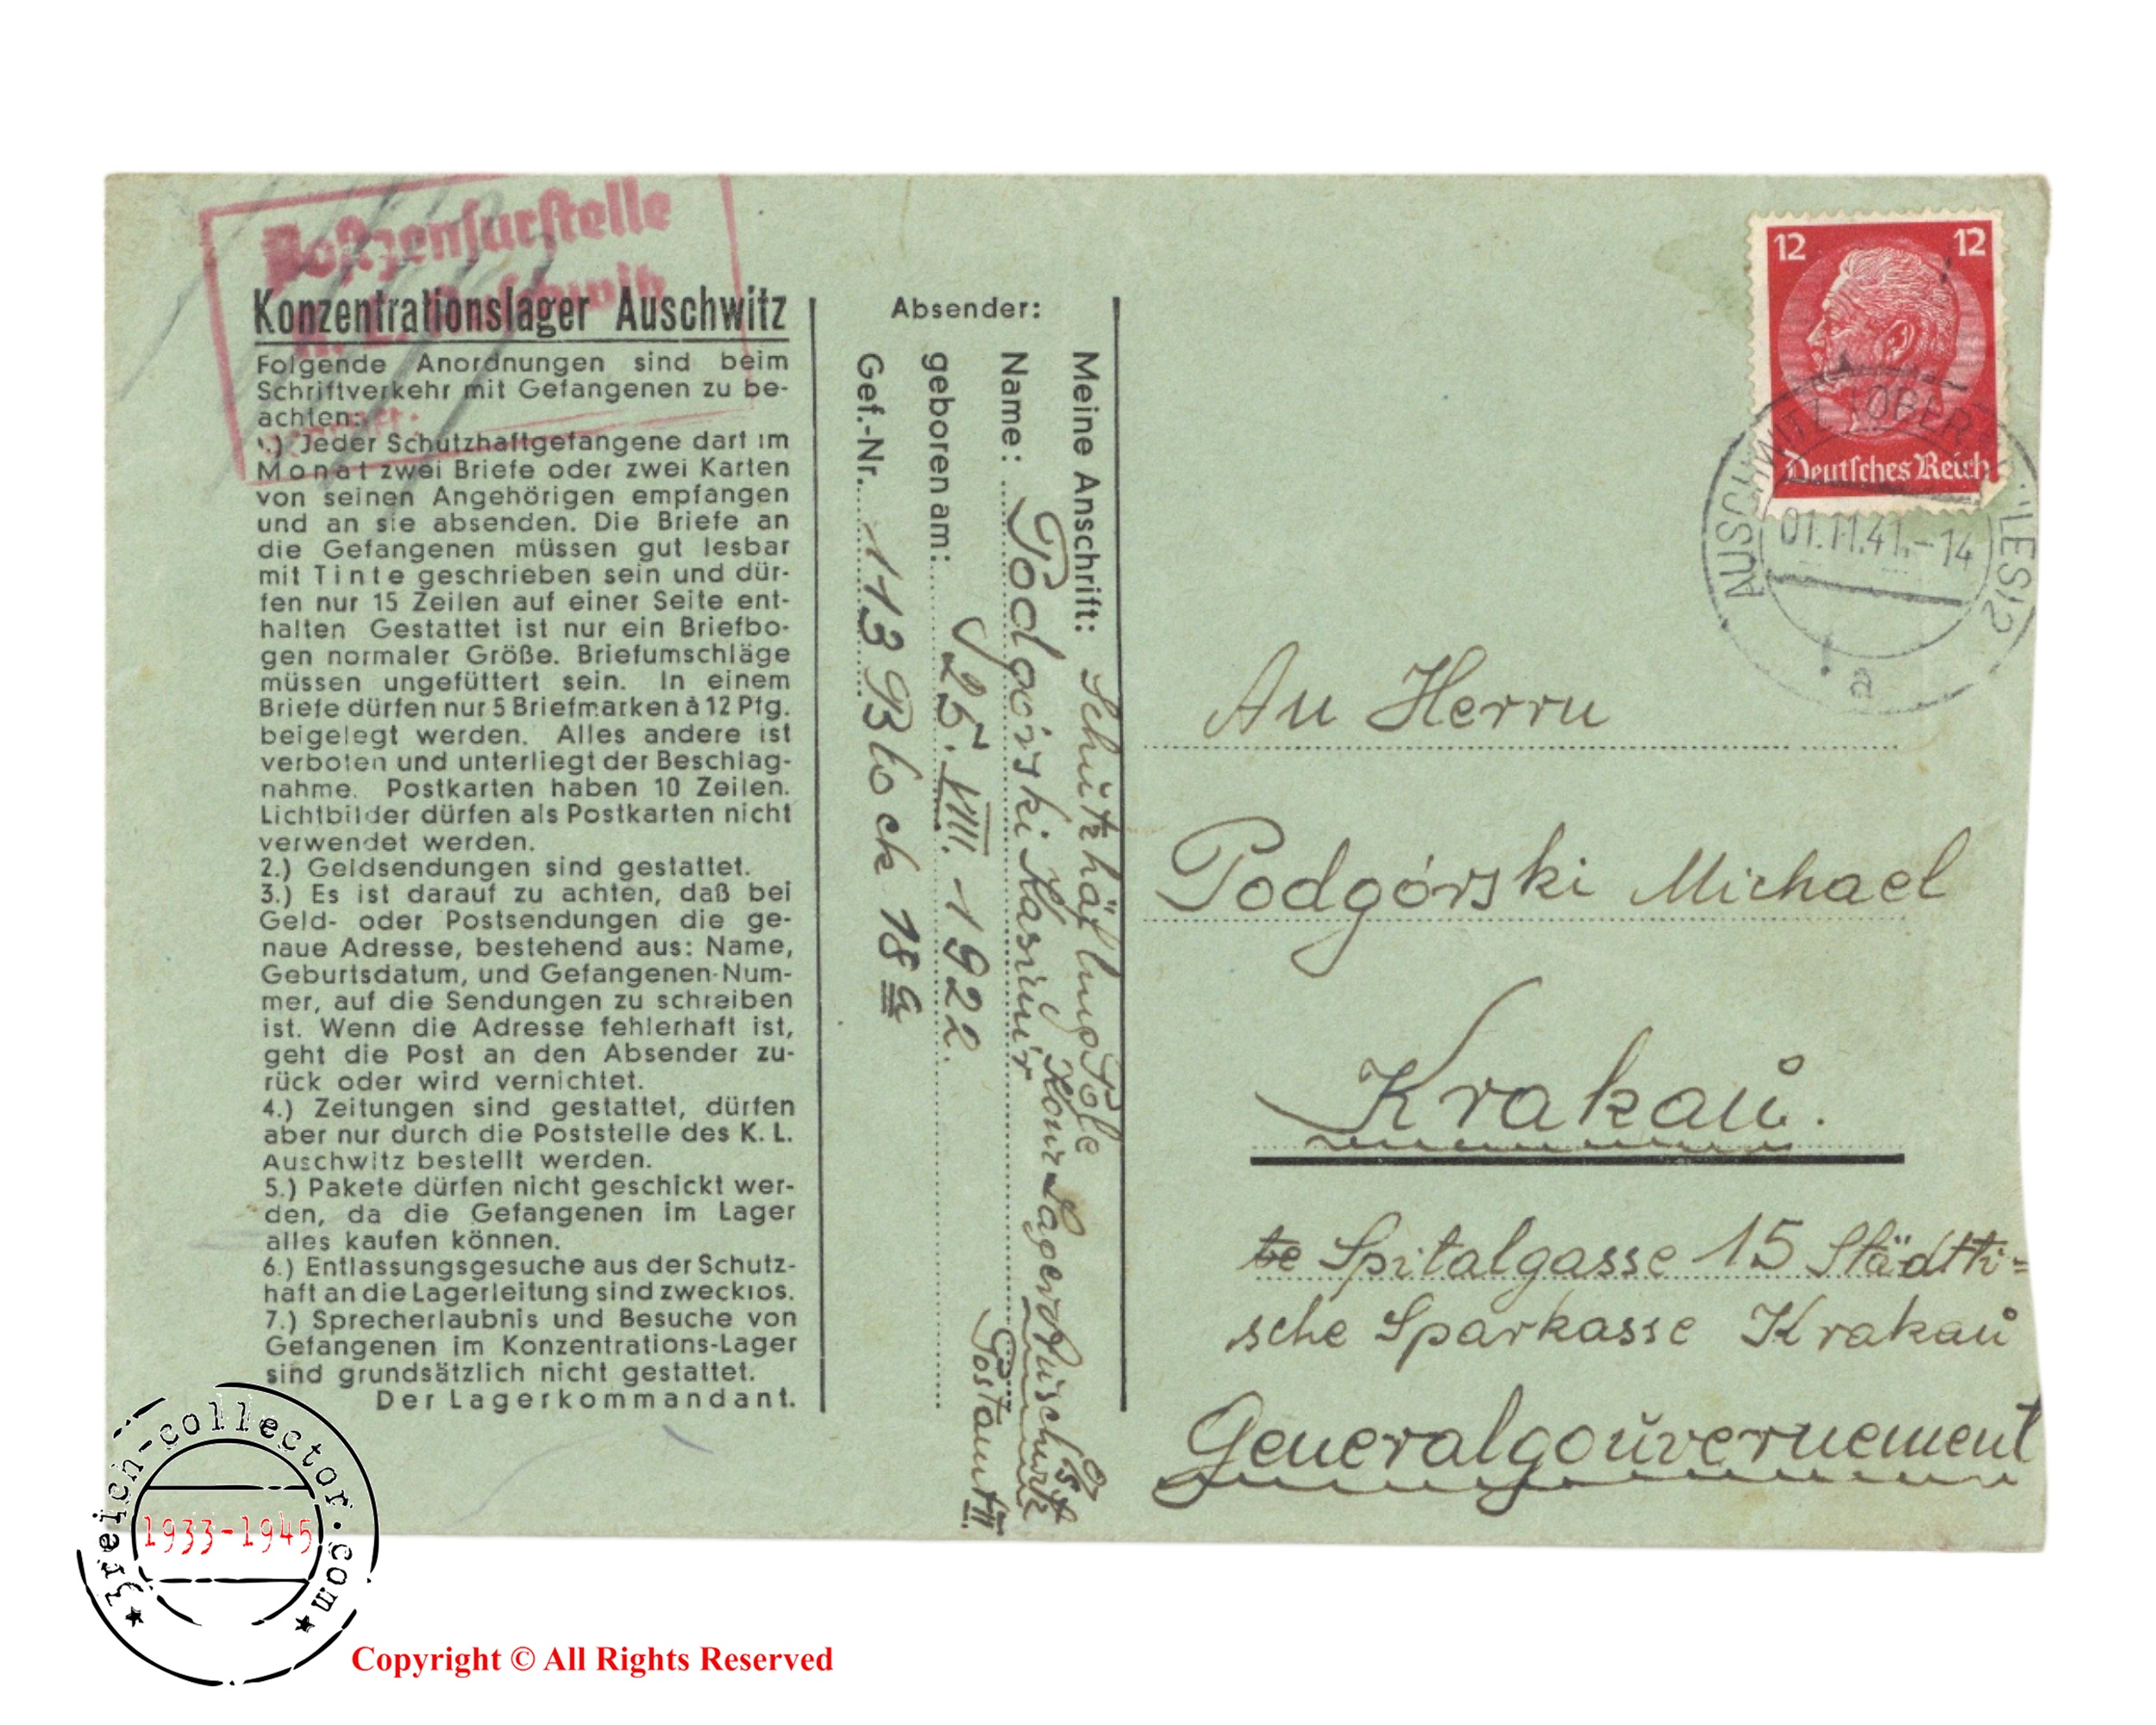 Postzensurstelle
Konzentrationslager Auschwitz
Folgende Anordnungen sind beim
Schriftverkehr mit Gefangenen zu be-
achten:
1.) Jeder Schutzhaftgefangene darf im
Monat zwei Briefe oder zwei Karten
von seinen Angehörigen empfangen
und an sie absenden. Die Briefe an
die Gefangenen müssen gut lesbar
mit Tinte geschrieben sein und dür-
fen nur 15 Zeilen auf einer Seite ent-
halten Gestattet ist nur ein Briefbo-
gen normaler Größe. Briefumschläge
müssen ungefüttert sein. In einem
Briefe dürfen nur 5 Briefmarken à 12 Pfg.
beigelegt werden. Alles andere ist
verboten und unterliegt der Beschlag-
nahme. Postkarten haben 10 Zeilen.
Lichtbilder dürfen als Postkarten nicht
verwendet werden.
2.) Geldsendungen sind gestattet.
3.) Es ist darauf zu achten, daß bei
Geld- oder Postsendungen die ge-
naue Adresse, bestehend aus: Name,
Geburtsdatum, und Gefangenen-Num-
mer, auf die Sendungen zu schreiben
ist. Wenn die Adresse fehlerhaft ist,
geht die Post an den Absender zu-
rück oder wird vernichtet.
4.) Zeitungen sind gestattet, dürfen
aber nur durch die Poststelle des K. L.
Auschwitz bestellt werden.
5.) Pakete dürfen nicht geschickt wer-
den, da die Gefangenen im Lager
alles kaufen können.
6.) Entlassungsgesuche aus der Schutz-
haft an die Lagerleitung sind zwecklos.
7.) Sprecherlaubnis und Besuche von
Gefangenen im Konzentrations-Lager
sind grundsätzlich nicht gestattet.
Der Lagerkommandant.
Absender:
Meine Anschrift: Schutzhäftling Pole
Name: Podgórski Kasimir Konz Lager Auschwitz
geboren am: 25. VIII. 1922. Postamt II.
Gef.-Nr. 113 Block 18a
12 12
Deutsches Reich
AUSCHWITZ (OBERSCHLES) 2
01.11.41.-14
a
An Herrn
Podgórski Michael
Krakau.
Spitalgasse 15 Städti-
sche Sparkasse Krakau
Generalgouvernement
3reich-collector.com
1933-1945
Copyright © All Rights Reserved